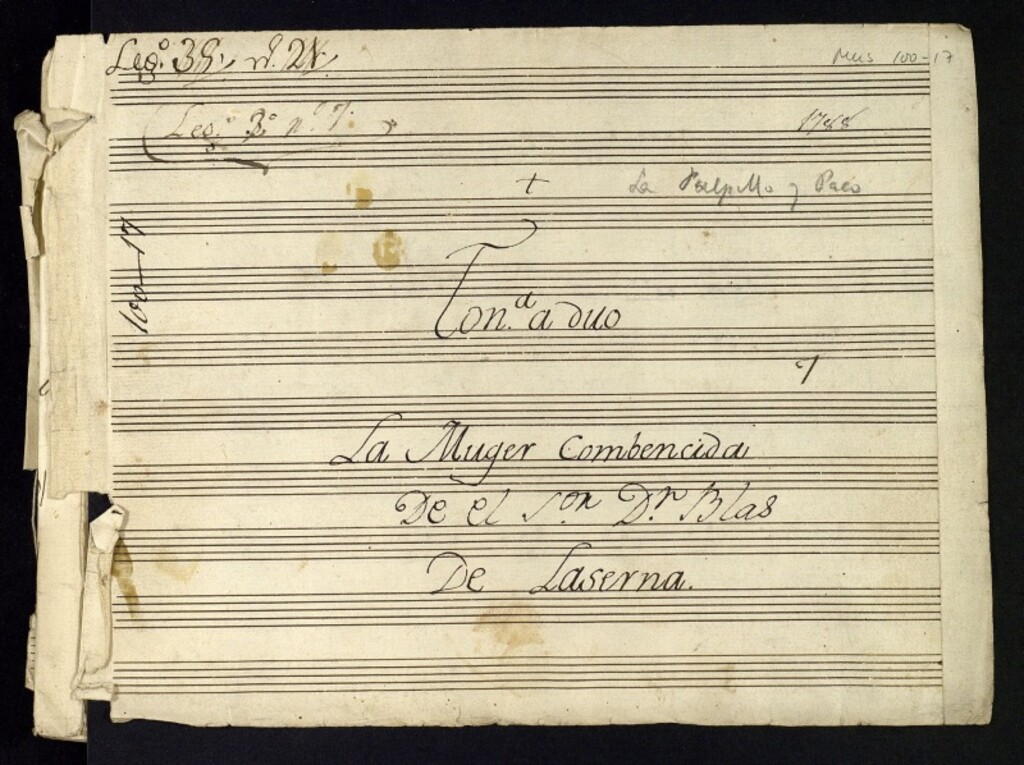 Leg.º 35. nº. 21
Mus 100-17
Leg.º 3.º n.º 7.
1788
+
La Pulpillo y Paco
100-17
Ton.ᵈᵃ a duo
7
La Muger Combencida
De el S.ºⁿ D.ⁿ Blas
De Laserna.